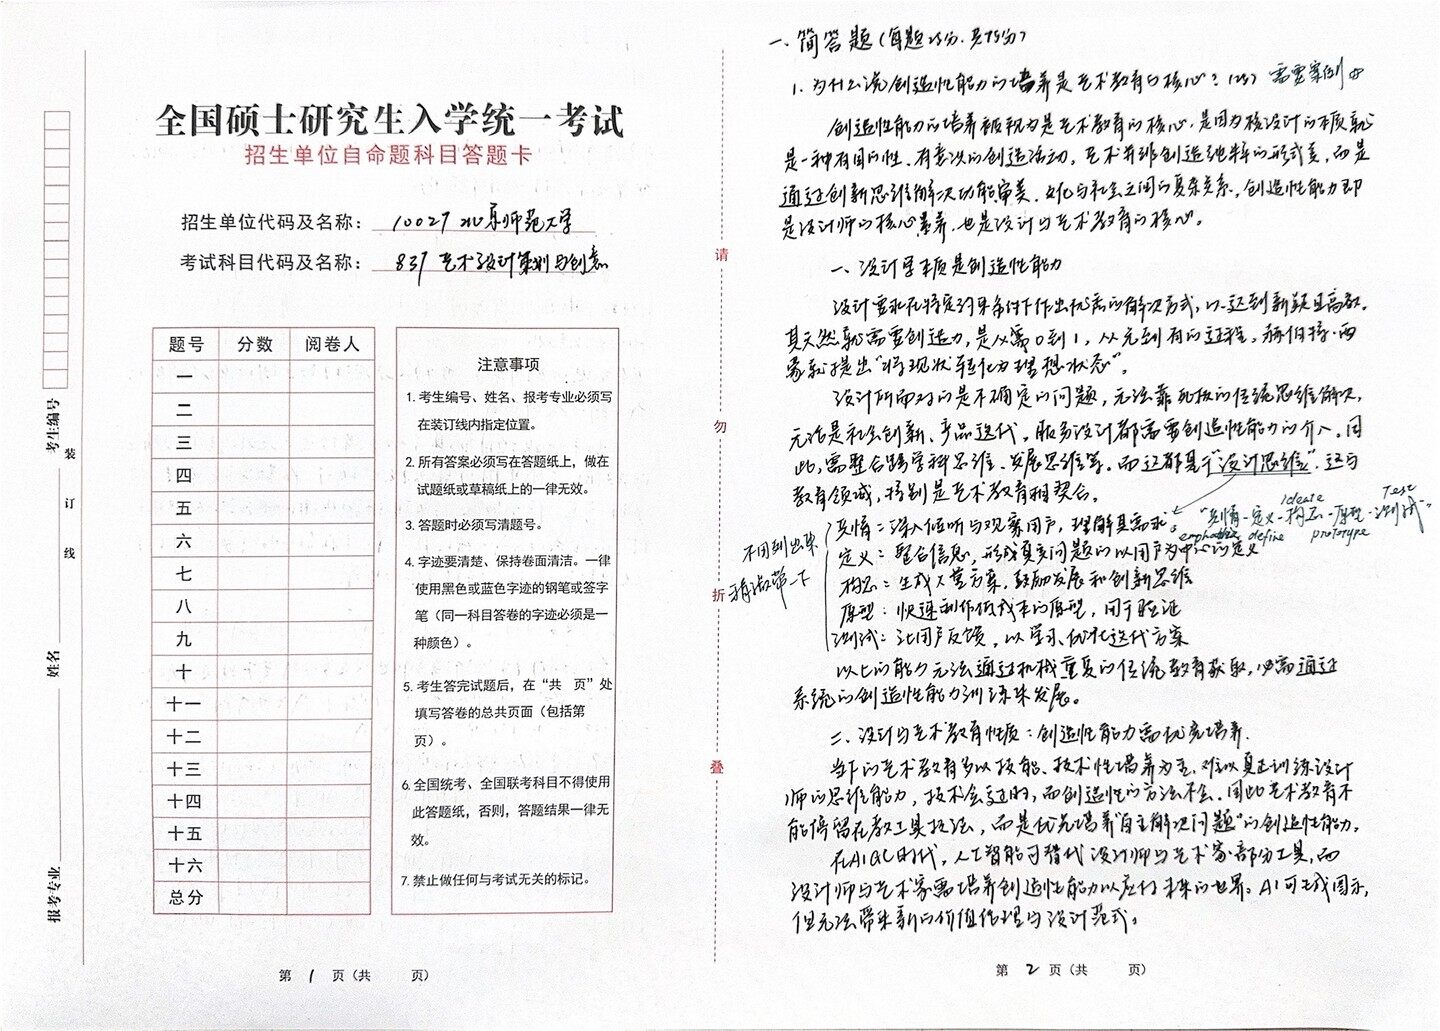 全国硕士研究生入学统一考试
招生单位自命题科目答题卡
招生单位代码及名称: 10027 北京师范大学
考试科目代码及名称: 837 艺术设计策划与创意
题号 分数 阅卷人
一
二
三
四
五
六
七
八
九
十
十一
十二
十三
十四
十五
十六
总分
注意事项
1. 考生编号、姓名、报考专业必须写
在装订线内指定位置。
2. 所有答案必须写在答题纸上，做在
试题纸或草稿纸上的一律无效。
3. 答题时必须写清题号。
4. 字迹要清楚、保持卷面清洁。一律
使用黑色或蓝色字迹的钢笔或签字
笔（同一科目答卷的字迹必须是一
种颜色）。
5. 考生答完试题后，在“共 页”处
填写答卷的总共页面（包括第
页）。
6. 全国统考、全国联考科目不得使用
此答题纸，否则，答题结果一律无
效。
7. 禁止做任何与考试无关的标记。
考生编号
姓名
报考专业
装
订
线
第 1 页（共 页）
请
勿
折
叠
一、简答题（每题25分，共75分）
1. 为什么说创造性能力的培养是艺术教育的核心？(25) 需要案例
创造性能力的培养被视为是艺术教育的核心，是因为设计的本质就
是一种有目的性、有意识的创造活动，艺术并非创造纯粹的形式美，而是
通过创新思维解决功能审美、文化与社会之间的复杂关系，创造性能力即
是设计师的核心素养，也是设计与艺术教育的核心。
一、设计学本质是创造性能力
设计需求在特定约束条件下作出优秀的解决方式，以达到新颖且高效。
其天然就需要创造力，是从0到1，从无到有的过程，赫伯特·西
蒙就提出“将现状转化为理想状态”。
设计所面对的是不确定的问题，无法靠死板的传统思维解决，
无论是社会创新、产品迭代，服务设计都需要创造性能力的介入。因
此，需整合跨学科思维、发展思维等。而这都基于“设计思维”，这与
教育领域，特别是艺术教育相契合。
“共情-定义-构思-原型-测试”
emphasize define Ideate prototype Test
不用列出来
稍微带一下
共情：深入倾听与观察用户，理解其需求
定义：整合信息，形成真实问题的以用户为中心的定义
构思：生成大量方案，鼓励发展和创新思维
原型：快速制作低成本的原型，用于验证
测试：让用户反馈，以学习、优化迭代方案
以上的能力无法通过机械重复的传统教育获取，必需通过
系统的创造性能力训练来发展。
二、设计与艺术教育性质：创造性能力需优先培养.
当下的艺术教育多以技能、技术性培养为主，难以真正训练设计
师的思维能力，技术会过时，而创造性的方法不会。因此艺术教育不
能停留在教工具技法，而是优先培养“自主解决问题”的创造性能力。
在AIGC时代，人工智能可替代设计师与艺术家部分工具，而
设计师与艺术家需培养创造性能力以应付未来的世界。AI可生成图示，
但无法带来新的价值伦理与设计范式。
第 2 页（共 页）